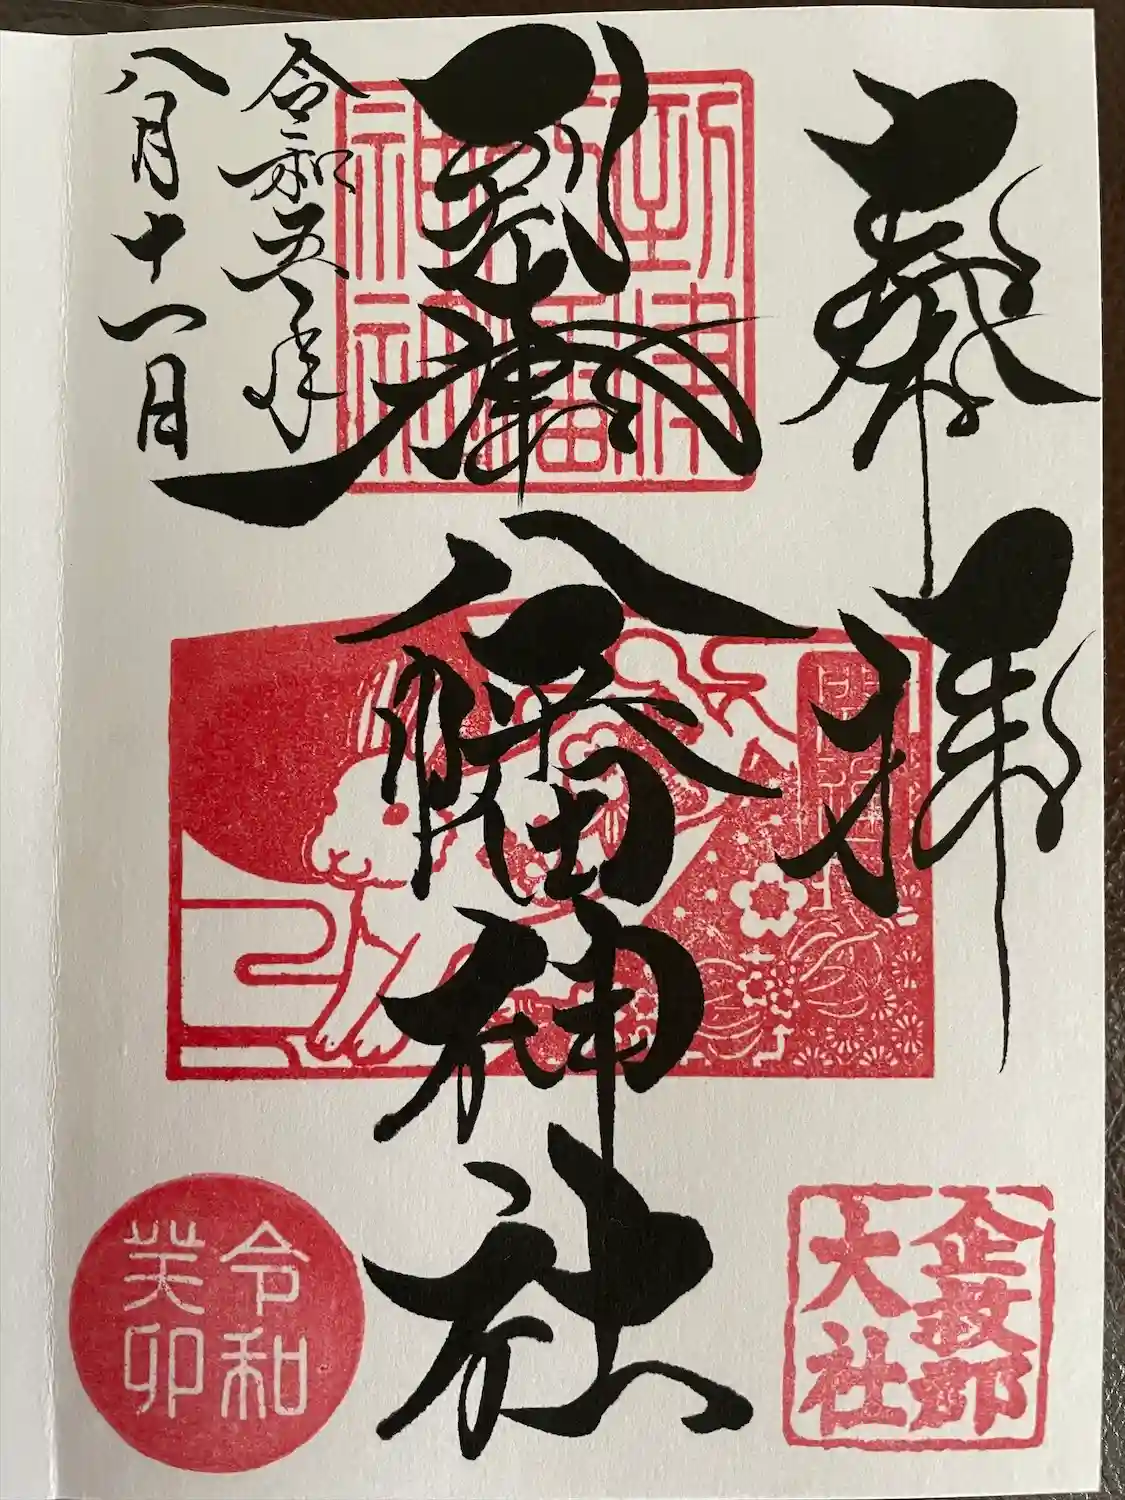 奉拝
到津八幡神社
令和五年
八月十一日
企救郡
大社
令和
癸卯